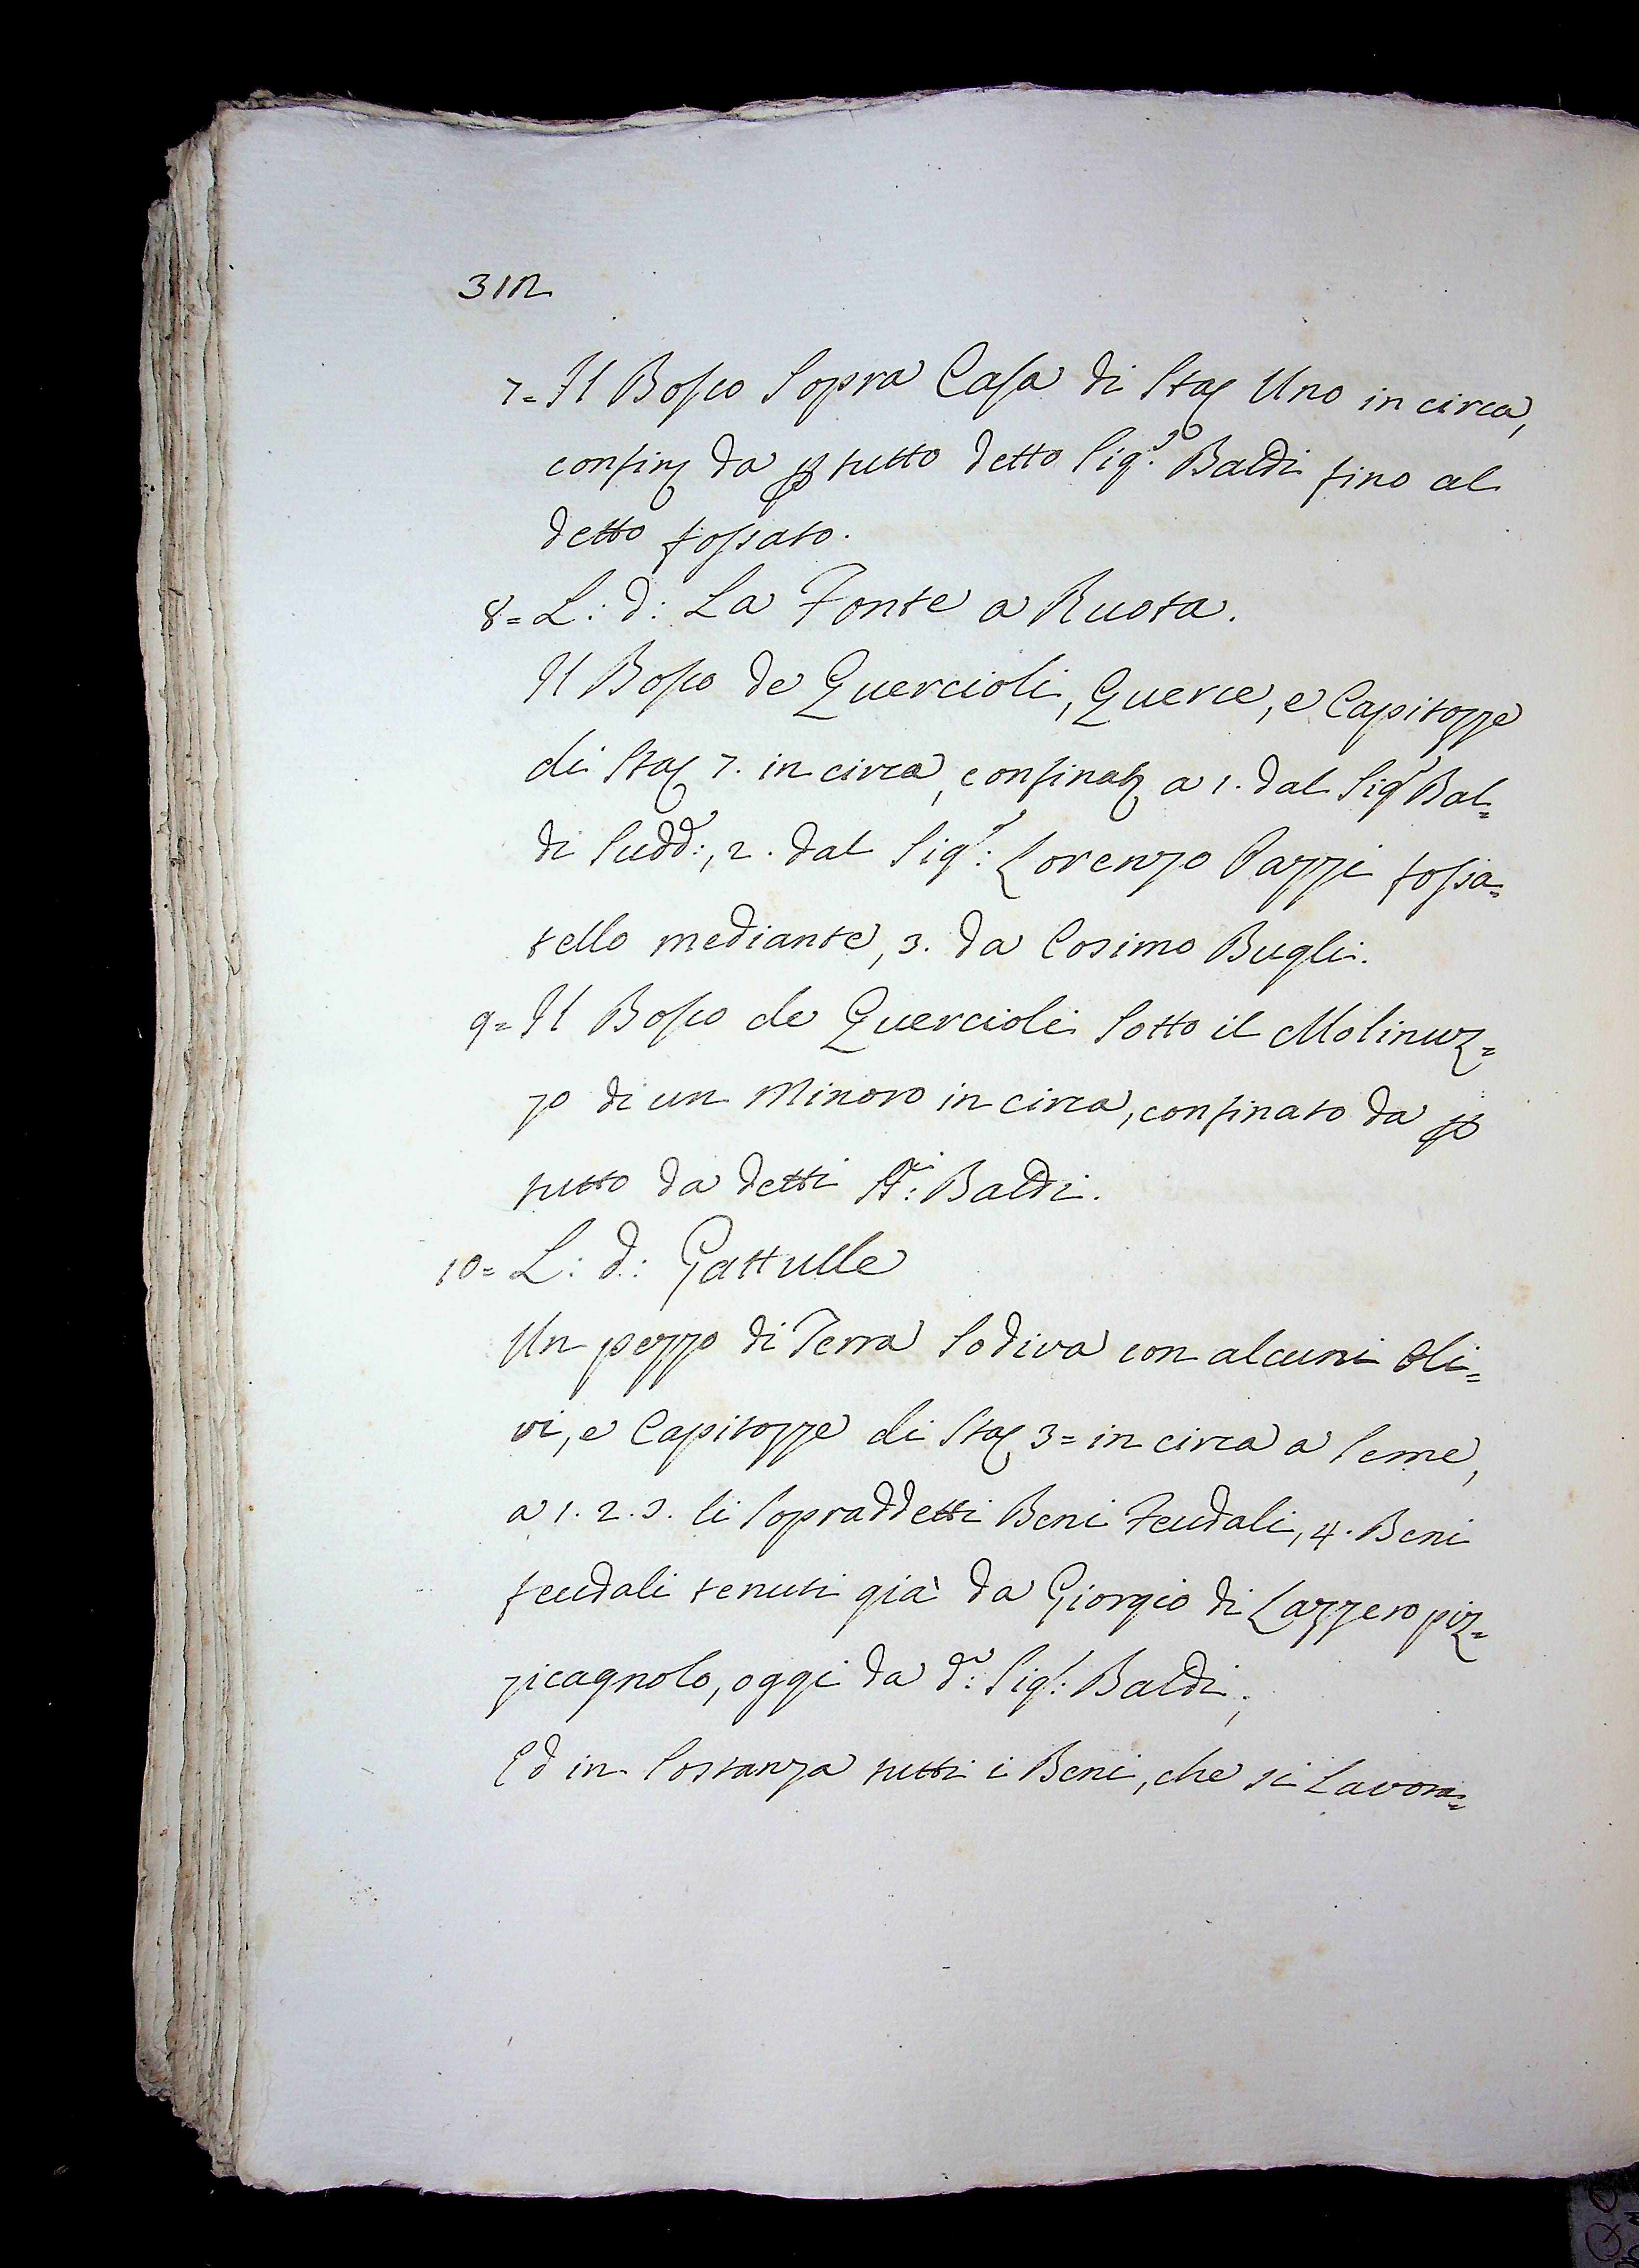 312
7= Il Bosco Sopra Casa di Sta: Uno in circa,
confin: da p tutto detto Sig:re Baldi fino al
detto fossato.
8= L: d: La Fonte a Ruota.
Il Bosco de Quercioli, Querce, e Capitozze
di Sta: 7. in circa, confinat: a 1. dal Sig:r Bal=
di Sudd:o, 2. dal Sig:r Lorenzo Pazzi fossa=
tello mediante, 3. da Cosimo Bugli.
9= Il Bosco de Quercioli Sotto il Molinuz=
zo di un Minoro in circa, confinato da p
tutto da detti SS:ri Baldi.
10= L: d: Gattulle
Un pezzo di Terra Sodiva con alcuni Oli=
vi, e Capitozze di Sta: 3= in circa a Seme,
a 1. 2. 3. li Sopraddetti Beni Feudali, 4. Beni
feudali tenuti già da Giorgio di Lazzero piz=
zicagnolo, oggi da d:o Sig:r Baldi;
Ed in Sostanza tutti i Beni, che si Lavora=